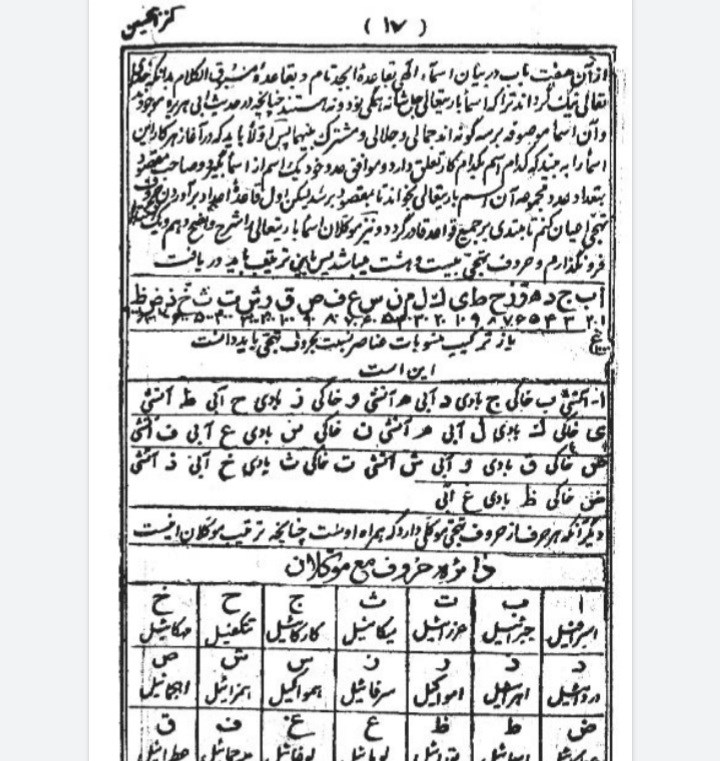 کنز الحسین
( ۱۷ )
از آن هفت باب در بیان اسماء الٰهی بقاعدهٔ ابجد تمام و بقاعدهٔ الکلام بدانکه
تعالی نیک گرداند ترا که اسما باریتعالی جل شانه همگی نود و نه هستند چنانچه در حدیث ابی هریره موجود
و آن اسما موصوفه بر سه گونه اند جمالی و جلالی و مشترک بینهما پس اولاً باید که در آغاز هر کار این
اسما را به بیند که کدام اسم بکدام کار تعلق دارد و موافق عدد خود یک اسم از اسما بگیرد و صاحب مقصود
بتعداد عدد مجموعه آن اسم باریتعالی بخواند تا بمقصود برسد لیکن اول قاعدهٔ اعداد برآوردن حروف
تهجی بیان کنم تا مبتدی بر جمیع قواعد قادر گردد و نیز موکلان اسما باریتعالی را شرح واضح دهم و یک
فرو نگذارم و حروف تهجی بیست و هشت میباشد پس باین ترتیب باید دریافت
ا ب ج د ه و ز ح ط ی ک ل م ن س ع ف ص ق ر ش ت ث خ ذ ض ظ
غ
باز ترکیب منسوبات عناصر نسبت بحروف تهجی باید دانست
این است
ا آتشی ب خاکی ج بادی د آبی ه آتشی و خاکی ز بادی ح آبی ط آتشی
ی خاکی ک بادی ل آبی م آتشی ن خاکی س بادی ع آبی ف آتشی
ص خاکی ق بادی ر آبی ش آتشی ت خاکی ث بادی خ آبی ذ آتشی
ض خاکی ظ بادی غ آبی
دیگر آنکه هر حرف از حروف تهجی موکلی دارد که همراه اوست چنانچه ترتیب موکلان اینست
دائره حروف مع موکلان
ا ب ت ث ج ح خ
اسرافیل جبرئیل عزرائیل میکائیل کلکائیل تنکفیل مهکائیل
د ذ ر ز س ش ص
دردائیل اهرائیل امواکیل سرفائیل همواکیل همزائیل اهجمائیل
ض ط ظ ع غ ف ق
لومائیل لوخائیل عطرائیل